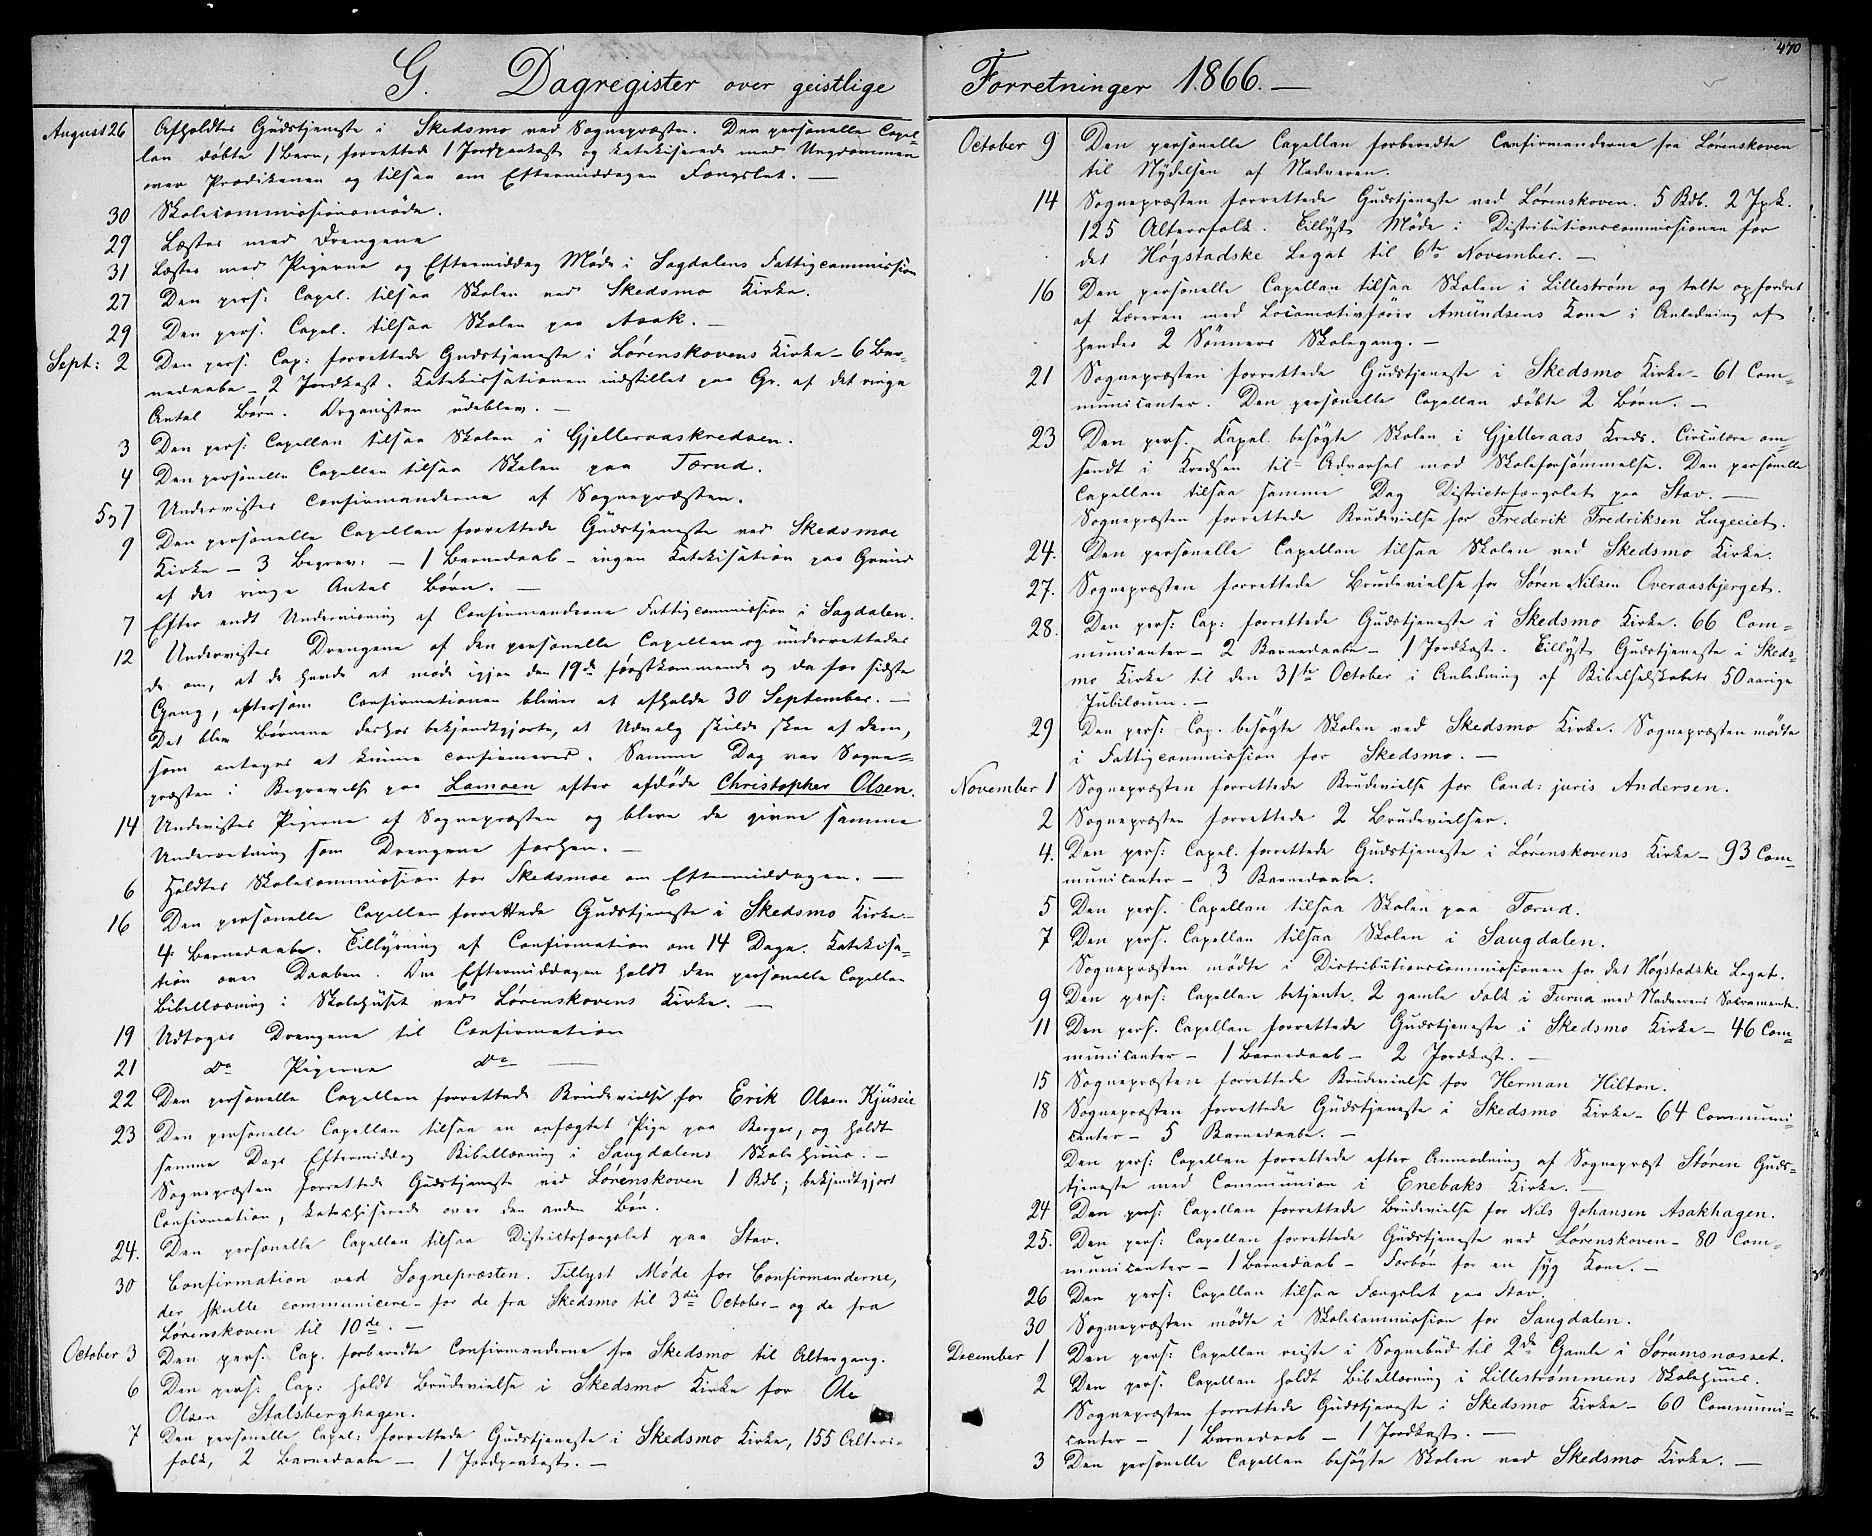 470
G. Dagregister over geistlige Forretninger 1866.—
August 26 Afholdtes Gudstjeneste i Skedsmo ved Sognepræsten. Den personelle Capel-
lan døbte 1 Barn, forrettede 1 Jordpaakast og katekiserede med Ungdommen
over Prædikenen og tilsaa om Eftermiddagen Fængslet. —
30 Skolecommissionsmøde.
29 Læstes med Drengene
31 Læstes med Pigerne og Eftermiddag Møde i Sagdalens Fattigcommission
27 Den pers: Capel. tilsaa Skolen ved Skedsmo Kirke.
29 Den pers. Capel. tilsaa Skolen paa Asak. —
Sept: 2 Den pers. Cap: forrettede Gudstjeneste i Lørenskovens Kirke – 6 Bar-
nedaabe – 2 Jordkast. Katekisationen indstillet paa Gr. af det ringe
Antal Børn. Organisten udeblev. —
3 Den pers: Capellan tilsaa Skolen i Gjelleraaskredsen.
4 Den personelle Capellan tilsaa Skolen paa Tærud.
5 og 7 Undervistes Confirmanderne af Sognepræsten.
9 Den personelle Capellan forrettede Gudstjeneste ved Skedsmoe
Kirke – 3 Begrav: – 1 Barnedaab – ingen Katekisation paa Grund
af det ringe Antal Børn. —
7 Efter endt Undervisning af Confirmanderne Fattigcommission i Sagdalen.
12 Undervistes Drengene af den personelle Capellan og underrettedes
de om, at de havde at møde igjen den 19de førstkommende og da for sidste
Gang, eftersom Confirmationen bliver at afholde 30 September. —
Det blev Børnene derhos bekjendtgjorte, at Udvalg skulde skee af dem,
som antages at kunne confirmeres. Samme Dag var Sogne-
præsten i Begravelse paa Lamoen efter afdøde Christopher Olsen.
14 Undervistes Pigerne af Sognepræsten og bleve de givne samme
Underretning som Drengene forhen. —
6 Holdtes Skolecommission for Skedsmoe om Eftermiddagen. —
16 Den personelle Capellan forrettede Gudstjeneste i Skedsmo Kirke –
4 Barnedaabe. Tillysning af Confirmation om 14 Dage. Katekisa-
tion over Daaben. Om Eftermiddagen holdt den personelle Capellan
Bibellæsning i Skolehuset ved Lørenskovens Kirke. —
19 Udtoges Drengene til Confirmation
21 do Pigerne do —
22 Den personelle Capellan forrettede Brudevielse for Erik Olsen Kjuseie
23 Den personelle Capellan tilsaa en anfægtet Pige paa Berger, og holdt
samme Dags Eftermiddag Bibellæsning i Saugdalens Skolehuus. —
Sognepræsten forrettede Gudstjeneste ved Lørenskoven 1 Bdb; bekjendtgjort
Confirmation, katechiserede over den anden Bøn.
24. Den personelle Capellan tilsaa Districtsfængslet paa Stav.
30 Confirmation ved Sognepræsten. Tillyst Møde for Confirmanderne,
der skulle communicere – for de fra Skedsmo til 3die October – og de fra
Lørenskoven til 10de. —
October 3 Den pers: Cap. forberedte Confirmanderne fra Skedsmo til Altergang.
6 Den pers. Cap: holdt Brudevielse i Skedsmo Kirke for Ole
Olsen Stalsberghagen.
7 Den personelle Capel: forrettede Gudstjeneste i Skedsmo Kirke, 155 Alters-
folk, 2 Barnedaabe – 1 Jordpaakast. —
October 9 Den personelle Capellan forberedte Confirmanderne fra Lørenskoven
til Nydelsen af Nadveren.
14 Sognepræsten forrettede Gudstjeneste ved Lørenskoven. 5 Bdb. 2 Jpk.
125 Altersfolk. Tillyst Møde i Distributionscommissionen for
det Høgstadske Legat til 6te November. —
16 Den personelle Capellan tilsaa Skolen i Lillestrøm og talte opfordret
af Læreren med Locomotivfører Amundsens Kone i Anledning af
hendes 2 Sønners Skolegang. —
21 Sognepræsten forrettede Gudstjeneste i Skedsmo Kirke – 61 Com-
municanter. Den personelle Capellan døbte 2 Børn. —
23 Den pers. Kapel. besøgte Skolen i Gjelleraas Kreds. Circulære om-
sendt i Kredsen til Advarsel mod Skoleforsømmelse. Den personelle
Capellan tilsaa samme Dag Districtsfængslet paa Stav. —
Sognepræsten forrettede Brudevielse for Frederik Fredriksen Lugeeiet.
24. Den personelle Capellan tilsaa Skolen ved Skedsmo Kirke.
27. Sognepræsten forrettede Brudevielse for Søren Nilsen Overaasbjerget.
28. Den pers: Cap: forrettede Gudstjeneste i Skedsmo Kirke. 66 Com-
municanter – 2 Barnedaabe – 1 Jordkast. Tillyst Gudstjeneste i Skeds-
mo Kirke til den 31te October i Anledning af Bibelselskabets 50 aarige
Jubilæum. —
29 Den pers: Cap. besøgte Skolen ved Skedsmo Kirke. Sognepræsten mødte
i Fattigcommission for Skedsmo. —
November 1 Sognepræsten forrettede Brudevielse for Cand: juris Andersen.
2 Sognepræsten forrettede 2 Brudevielser.
4. Den pers: Capel. forrettede Gudstjeneste i Lørenskovens Kirke – 93 Com-
municanter – 3 Barnedaabe.
5 Den pers. Capellan tilsaa Skolen paa Tærud.
7 Den pers. Capellan tilsaa Skolen i Saugdalen.
Sognepræsten mødte i Distributionscommissionen for det Høgstadske Legat.
9 Den pers: Capellan betjente 2 gamle Folk i Furua med Nadverens Sacramente.
11 Den pers. Capellan forrettede Gudstjeneste i Skedsmo Kirke – 46 Com-
municanter – 1 Barnedaab – 2 Jordkast. —
15 Sognepræsten forrettede Brudevielse for Herman Hilton.
18 Sognepræsten forrettede Gudstjeneste i Skedsmo Kirke – 64 Communi-
canter – 5 Barnedaabe. —
Den pers: Capellan forrettede efter Anmodning af Sognepræst Støren Guds-
tjeneste med Communion i Enebaks Kirke. —
24 Den pers: Capellan forrettede Brudevielse for Nils Johansen Asakhagen.
25. Den pers: Capellan forrettede Gudstjeneste ved Lørenskoven – 80 Com-
municanter – 1 Barnedaab – Forbøn for en syg Kone. —
26 Den pers: Capellan tilsaa Fængslet paa Stav.
30 Sognepræsten mødte i Skolecommission for Saugdalen.
December 1 Den pers: Capellan reiste i Sognebud til 2de Gamle i Sørumsnæsset.
2 Den pers. Capellan holdt Bibellæsning i Lillestrømmens Skolehuus.
Sognepræsten forrettede Gudstjeneste i Skedsmo Kirke – 60 Communi-
canter – 1 Barnedaab – 1 Jordkast. —
3 Den personelle Capellan besøgte Skolen ved Skedsmo Kirke. —